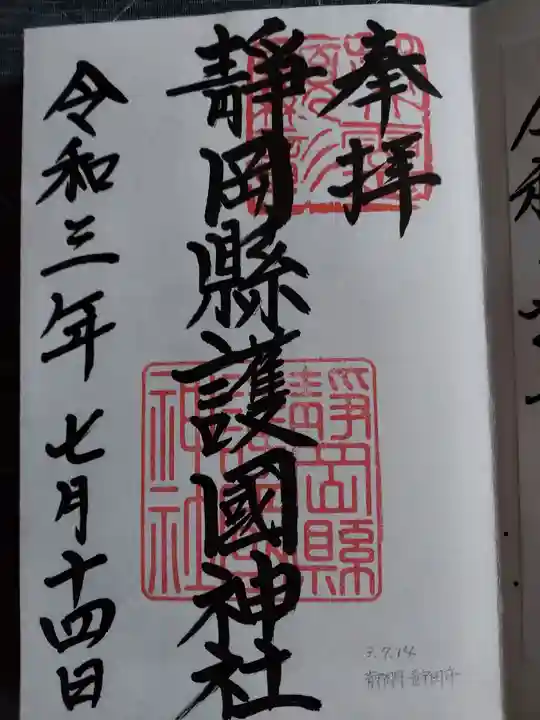 奉拝
靜岡縣護國神社
令和三年七月十四日
靜岡縣
護國
神社
3.7.14
静岡県静岡市